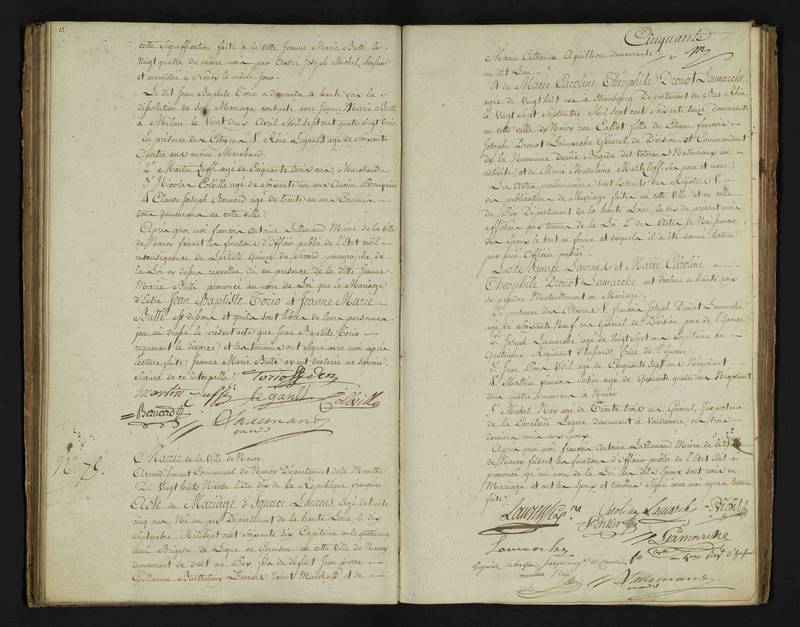 cette signiffication faite à la ditte Jeanne Marie Butté les
Vingt quatre du même mois par André Joseph Michel, huissier
et enregistrée a Nancy le même jour.
Le dit Jean Baptiste Torio a demandé a haute voix la
dissolution de son Mariage contracté avec Jeanne Marie Butté
à Milan le Vingt deux Avril Mil sept cent quatre vingt trois
En présence des Citoyens 1° Rose Legault agé de soixante
quatre ans ancien Marchand
2° Martin Zuffi agé de Cinquante trois ans, Marchand
3° Nicolas Colville agé de soixante six ans Ancien
4° Claude Joseph Bonnard agé de trente un ans
demeurans en cette Ville.
Après quoi moi françois Antoine Lallemand Maire de la Ville
de Nancy faisant les fonctions d'Officier public de l'Etat civil
en conséquence de l'article quinze de second paragraphe de
la Loi cy dessus rappellée, ai en présence de la ditte Jeanne
Marie Butté prononcé au nom de la Loi que le Mariage
d'Entre Jean Baptiste Torio et Jeanne Marie
Butté est dissout et qu'ils sont libres de leurs personnes.
j'en ai dressé le présent acte que Jean Baptiste Torio
requerant le divorce et les témoins ont signé avec moi après
lecture faite, Jeanne Marie Butté ayant déclarée ne savoir
Signer de ce interpellée
Martin Zuffi Legault Colville
Lallemand
N° 78.
Mairie de la Ville de Nancy.
Arrondissement Communal de Nancy Département de la Meurthe
Du Vingt huit Nivôse l'An dix de la République française
Acte de Mariage d'Ignace Laurens, agé de trente
cinq ans Né au Département de la haute Loire, le dix
Septembre Mil sept cent soixante six Capitaine en la quatrieme
demi Brigade de Ligne en Garnison en cette Ville de Nancy
demeurant de droit au Puy fils de défunt Jean pierre
Guillaume Barthelemy Laurens Vivant Marchand et de
Cinquante
Marie Catherine Aquillion demeurante
au dit Lieu
Et de Marie Caroline Théophile Drouot Lamarche
agée de Vingt huit ans a Strasbourg Département du Bas Rhin
le Vingt sept Septembre Mil sept cent soixante treize demeurante
en cette Ville de Nancy rue Callot fille du Citoyen françois
Joseph Drouot Lamarche Général de Division et Commandant
de la Neuvieme demie Brigade des Vétérans Nationaux en
activité, et de Marie Madelaine ses pere et mere.
Les Actes preliminaires sont Extraits des Registres 1°
des publication de Mariage faite en cette Ville et en celle
du Puy Département de la haute Loire, le dix du present mois
affichées aux termes de la Loi 2° des Actes de Naissances
des Epoux le tout en forme et desquels il a été donné lecture
par moi Officier public.
Ledit Ignace Laurens et Marie Caroline
Théophile Drouot Lamarche ont déclaré a haute voix
se prendre Mutuellement en Mariage.
En présence des Citoyens 1° françois Joseph Drouot Lamarche
agé de soixante Neuf ans Général de Division pere de l'Epouse
2° Joseph Lamarche agé de Vingt sept ans Capitaine au
Quatrieme Regiment d'hussards, frère de l'Epouse.
3° Jean agé de Cinquante sept ans Négociant
4° Mathieu agé de Quarante quatre ans Négociant
tous quatre demeurans à Nancy
5° Michel Ney agé de Trente trois ans Général, Inspecteur
de la Cavalerie Légère demeurant à
Après quoi moi françois Antoine Lallemand Maire de la Ville
de Nancy faisant les fonctions d'Officier public de l'Etat civil ai
prononcé qu'au nom de la Loi les dits Epoux sont unis en
Mariage et ont les Epoux et temoins Signé avec moi après lecture
faite.
Laurens Caroline Lamarche
Lamarche
Lamarche
Lallemand